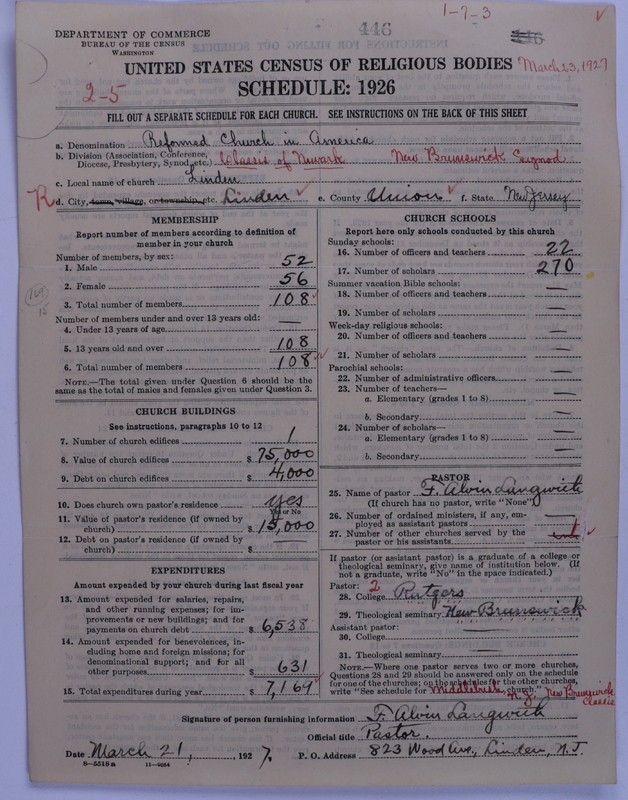 446
1-7-3
DEPARTMENT OF COMMERCE
BUREAU OF THE CENSUS
WASHINGTON
446
UNITED STATES CENSUS OF RELIGIOUS BODIES
March 23, 1927
2-5
SCHEDULE: 1926
FILL OUT A SEPARATE SCHEDULE FOR EACH CHURCH. SEE INSTRUCTIONS ON THE BACK OF THIS SHEET
a. Denomination Reformed Church in America
b. Division (Association, Conference, Diocese, Presbytery, Synod, etc.) Classis of Newark New Brunswick Synod
c. Local name of church Linden
R d. City, town, village, or township, etc. Linden e. County Union f. State New Jersey
MEMBERSHIP
Report number of members according to definition of member in your church
Number of members, by sex:
1. Male 52
2. Female 56
3. Total number of members 108
Number of members under and over 13 years old:
4. Under 13 years of age —
5. 13 years old and over 108
6. Total number of members 108
NOTE.—The total given under Question 6 should be the same as the total of males and females given under Question 3.
CHURCH BUILDINGS
See instructions, paragraphs 10 to 12
7. Number of church edifices 1
8. Value of church edifices $ 75,000
9. Debt on church edifices $ 4,000
10. Does church own pastor's residence yes
Yes or No
11. Value of pastor's residence (if owned by church) $ 15,000
12. Debt on pastor's residence (if owned by church) $ —
EXPENDITURES
Amount expended by your church during last fiscal year
13. Amount expended for salaries, repairs, and other running expenses; for improvements or new buildings; and for payments on church debt $ 6,538
14. Amount expended for benevolences, including home and foreign missions; for denominational support; and for all other purposes $ 631
15. Total expenditures during year $ 7,169
CHURCH SCHOOLS
Report here only schools conducted by this church
Sunday schools:
16. Number of officers and teachers 22
17. Number of scholars 270
Summer vacation Bible schools:
18. Number of officers and teachers —
19. Number of scholars —
Week-day religious schools:
20. Number of officers and teachers —
21. Number of scholars —
Parochial schools:
22. Number of administrative officers —
23. Number of teachers—
a. Elementary (grades 1 to 8) —
b. Secondary —
24. Number of scholars—
a. Elementary (grades 1 to 8) —
b. Secondary —
PASTOR
25. Name of pastor F. Alvin Langwith
(If church has no pastor, write "None")
26. Number of ordained ministers, if any, employed as assistant pastors —
27. Number of other churches served by the pastor or his assistants 1
If pastor (or assistant pastor) is a graduate of a college or theological seminary, give name of institution below. (If not a graduate, write "No" in the space indicated.)
Pastor: 2
28. College Rutgers
29. Theological seminary New Brunswick
Assistant pastor:
30. College —
31. Theological seminary —
NOTE.—Where one pastor serves two or more churches, Questions 28 and 29 should be answered only on the schedule for one of the churches; on the schedules for the other churches, write "See schedule for Middlebush church." N.J. New Brunswick Classis
Signature of person furnishing information F. Alvin Langwith
Official title Pastor.
Date March 21, 1927. P. O. Address 823 Wood Ave., Linden, N.J.
8—5518a 11—9064